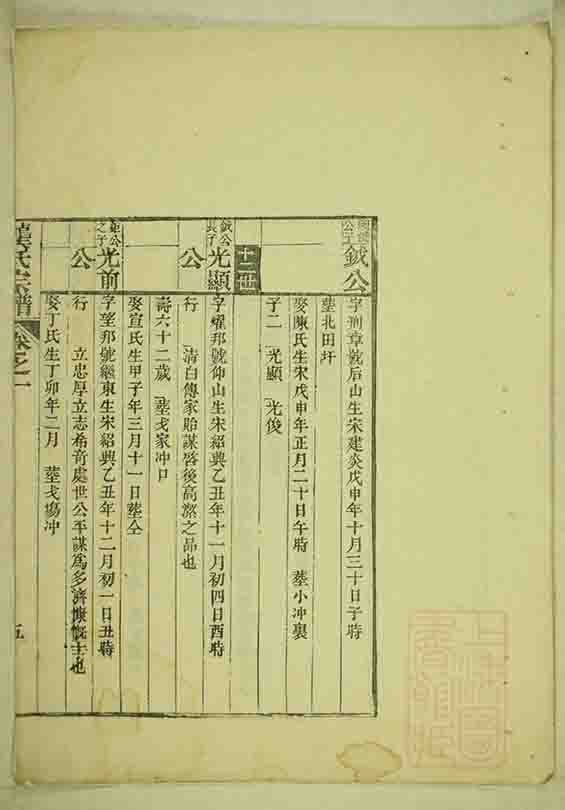 鉞公
字刑章號后山生宋建炎戊申年十月三十日子時
塟北田圩
娶陳氏生宋戊申年正月二十日午時 塟小冲裏
子二 光顯 光俊
十二世
鉞公長子 光顯公
字燿邦號仰山生宋紹興乙丑年十一月初四日酉時
行 清白傳家貽謀啓後高潔之品也
壽六十二歲 塟戈家冲口
娶宣氏生甲子年三月十一日塟仝
鉅公之子 光前公
字望邦號繼東生宋紹興乙丑年十二月初一日丑時
行 立忠厚立志希奇處世公平謀為多濟慷慨士也
娶丁氏生丁卯年二月 塟戈塲冲
氏宗譜 卷之一 五